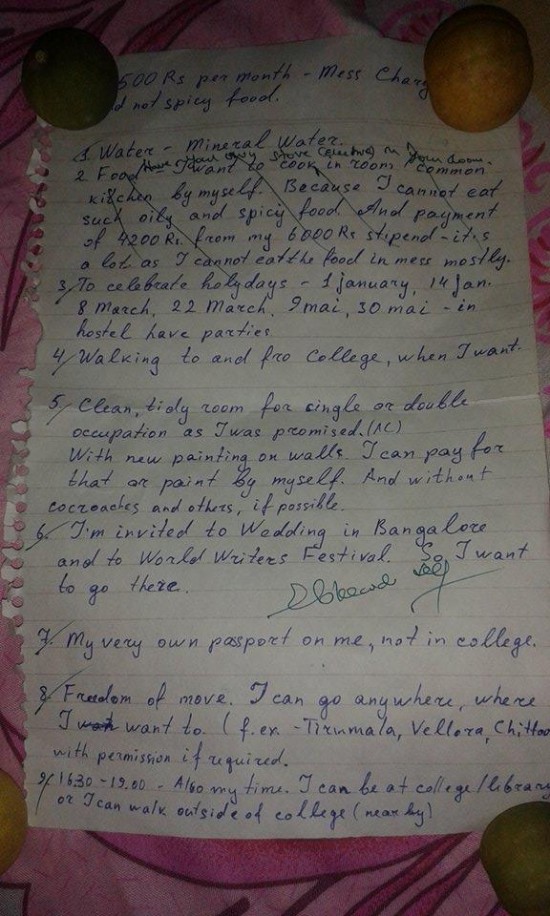 500 Rs per month - Mess Charg
d not spicy food.
1. Water - Mineral Water.
Have your own stove (electric) in your room.
2. Food - I want to cook in room / common
kitchen by myself. Because I cannot eat
such oily and spicy food. And payment
of 4200 Rs. from my 6000 Rs stipend - it's
a lot as I cannot eat the food in mess mostly.
3. To celebrate holydays - 1 january, 14 jan.
8 March, 22 March, 9 mai, 30 mai - in
hostel have parties
4. Walking to and fro College, when I want.
5. Clean, tidy room for single or double
occupation as I was promised. (AC)
With new painting on walls. I can pay for
that or paint by myself. And without
cocroaches and others, if possible.
6. I'm invited to Wedding in Bangalore
and to World Writers Festival. So I want
to go there.
7. My very own passport on me, not in college.
8. Freedom of move. I can go anywhere, where
I want to. (f.ex. - Tirumala, Vellora, Chittoo
with permission if required.
9. 1630 - 19.00 - Also my time. I can be at college/library
or I can walk outside of college (near by)